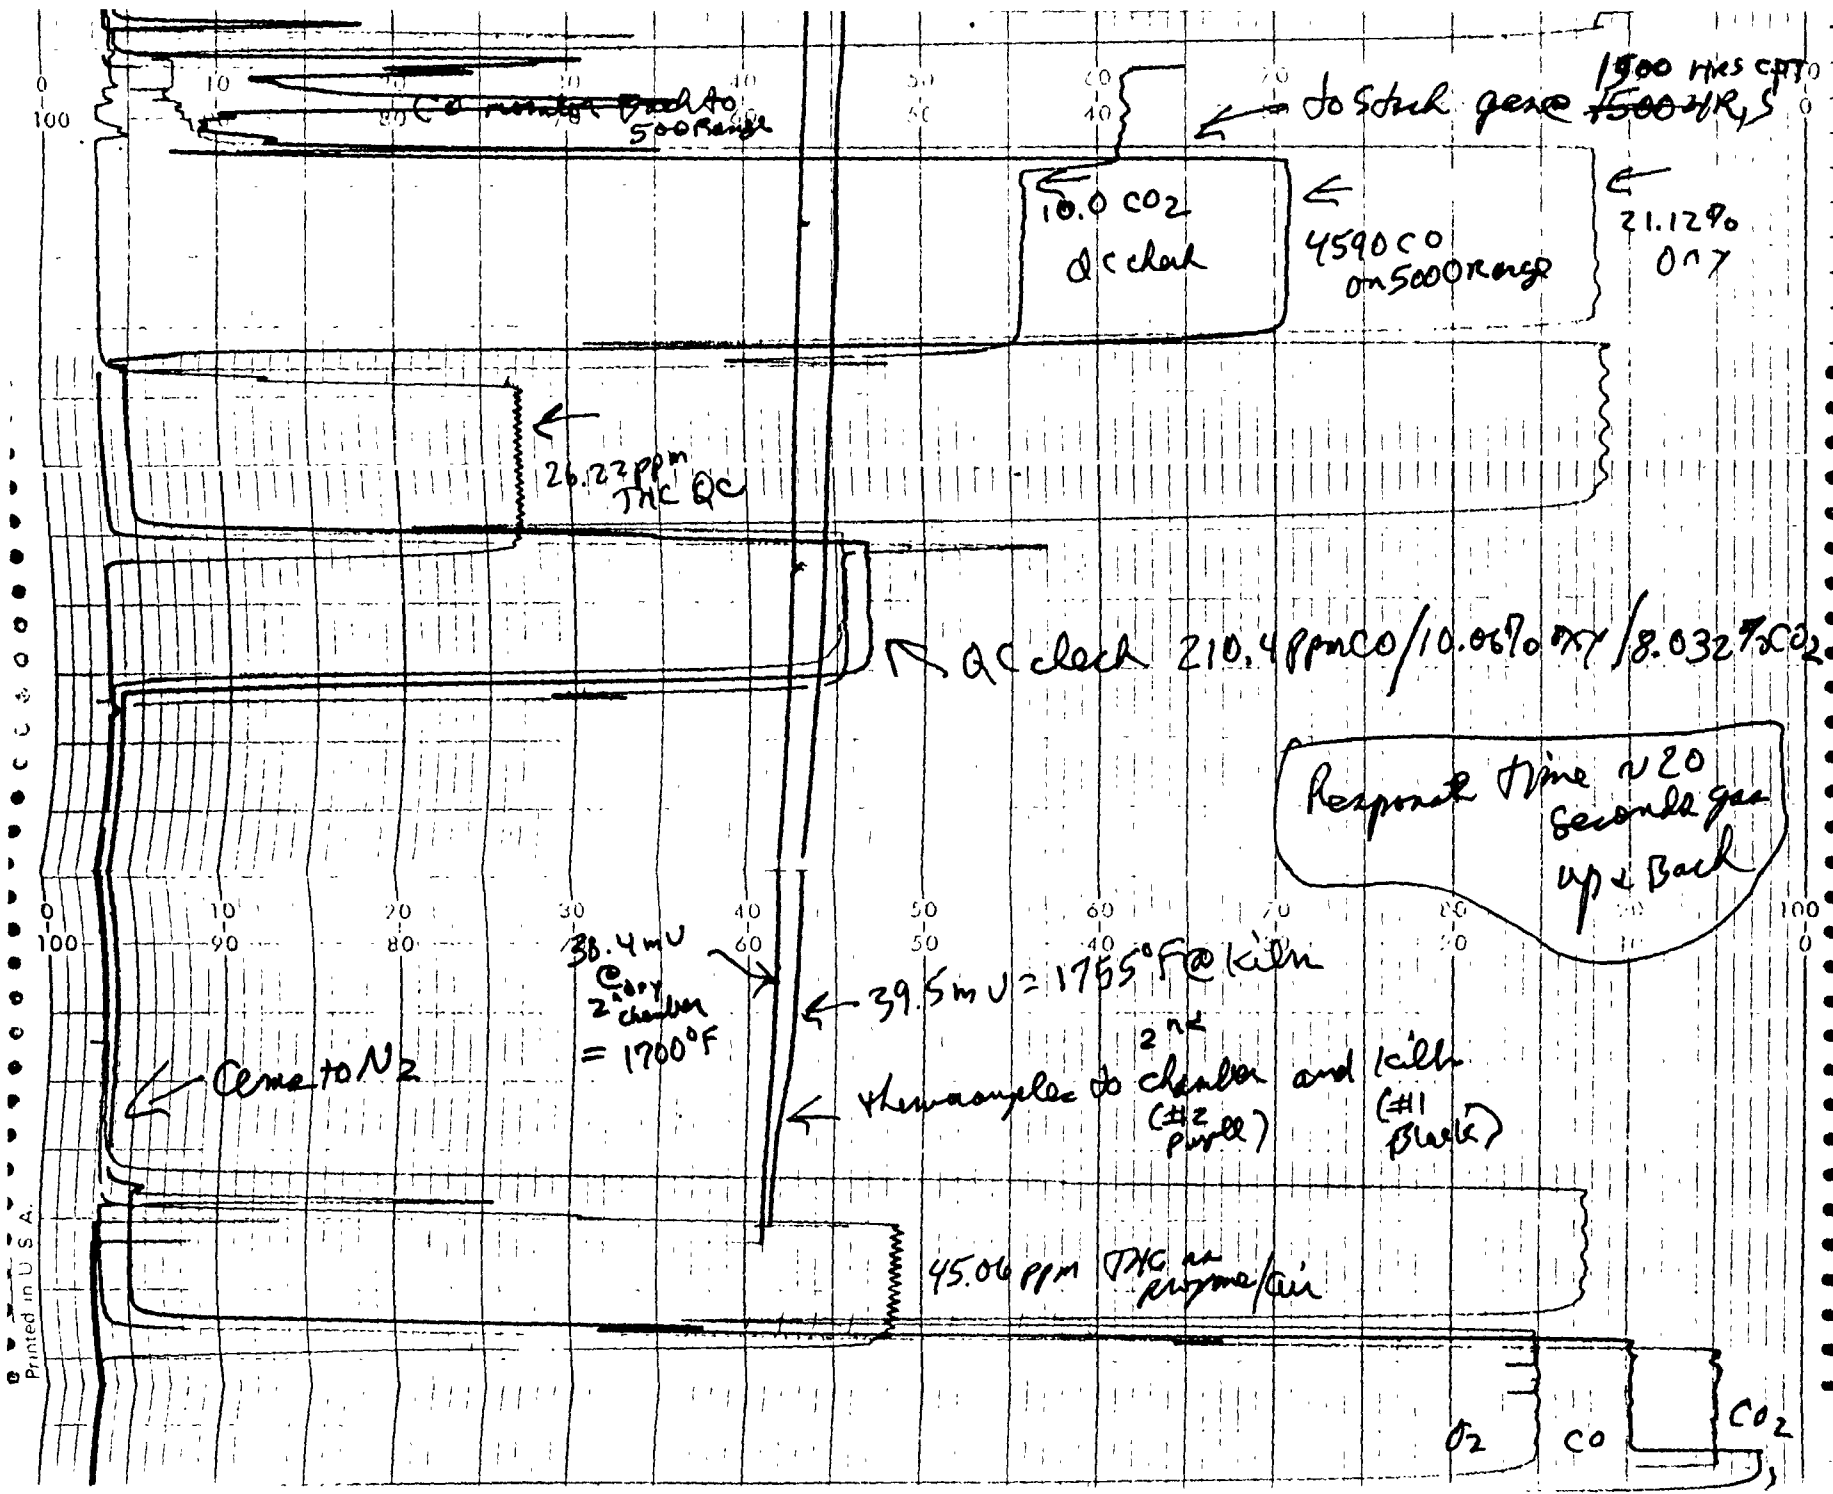 0 10 20 30 40 50 60 70
100 80 40
1500 Hrs CDT
CO monitor Back to
500 Range
to Stack gases 1500 HRS
10.0 CO2
QC check
4590 CO
on 5000 Range
21.12%
Oxy
26.22 ppm
THC QC
QC check 210.4 ppm CO/10.06% oxy/8.032% CO2
Response time ~20
seconds gas
up & Back
0 10 20 30 40 50 60 70 80 90 100
100 90 80 60 50 40 30 20 0
38.4 mV
@
2ndry
chamber
= 1700°F
39.5 mV = 1755°F @ Kiln
Cems to N2
thermocouples to 2nd chamber and Kiln
(#2
purple)
(#1
Black)
45.06 ppm THC as
propane/air
O2
CO
CO2
Printed in U.S.A.